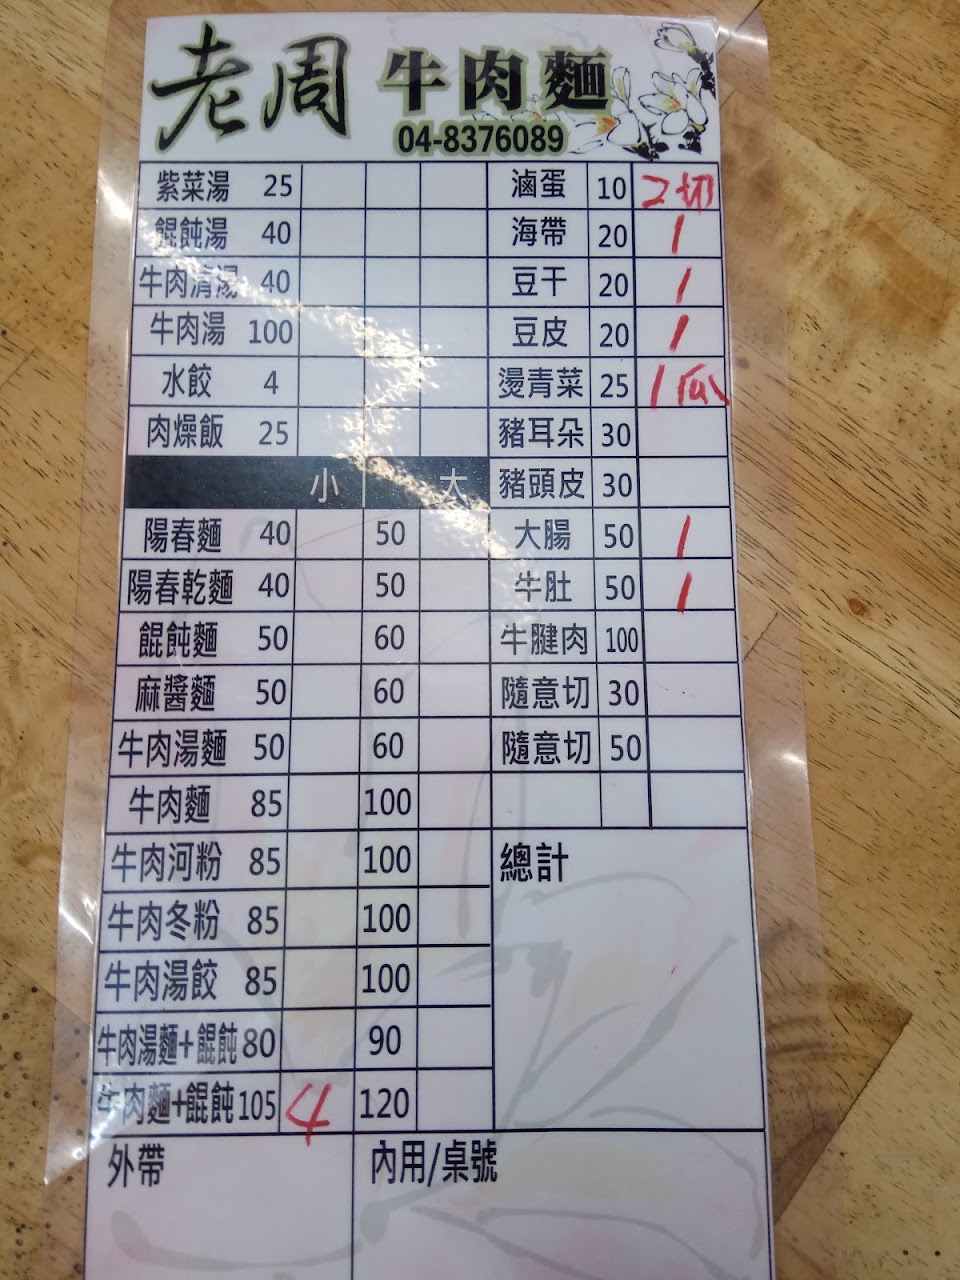 老周 牛肉麵
04-8376089
紫菜湯 25 滷蛋 10 2切
餛飩湯 40 海帶 20 1
牛肉清湯 40 豆干 20 1
牛肉湯 100 豆皮 20 1
水餃 4 燙青菜 25 1瓜
肉燥飯 25 豬耳朵 30
小 大 豬頭皮 30
陽春麵 40 50 大腸 50 1
陽春乾麵 40 50 牛肚 50 1
餛飩麵 50 60 牛腱肉 100
麻醬麵 50 60 隨意切 30
牛肉湯麵 50 60 隨意切 50
牛肉麵 85 100
牛肉河粉 85 100 總計
牛肉冬粉 85 100
牛肉湯餃 85 100
牛肉湯麵+餛飩 80 90
牛肉麵+餛飩 105 4 120
外帶 內用/桌號